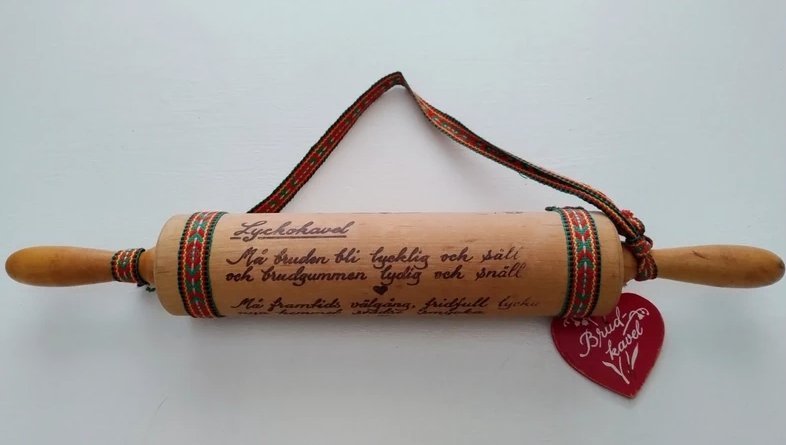 Lyckokavel
Må bruden bli lycklig och säll
och brudgummen lydig och snäll
Må framtids välgång, fridfull lycka
Brud-
kavel